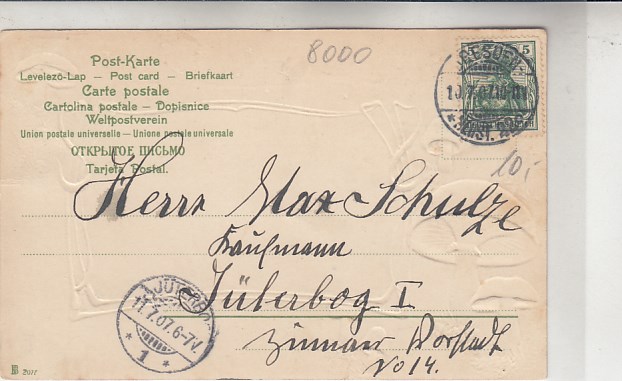 Post-Karte
Levelező-Lap — Post card — Briefkaart
Carte postale
Cartolina postale — Dopisnice
Weltpostverein
Union postale universelle — Unione postale universale
ОТКРЫТОЕ ПИСЬМО
Tarjeta Postal.
8000
5
DRESDEN
10.7.07.10-11V.
* ALTST. *
10,-
Herrn Max Schulze
Kaufmann
Jüterbog I
Zinnaer Vorstadt
No 14.
JÜTERBOG
11.7.07.6-7V.
* 1 *
B 2077